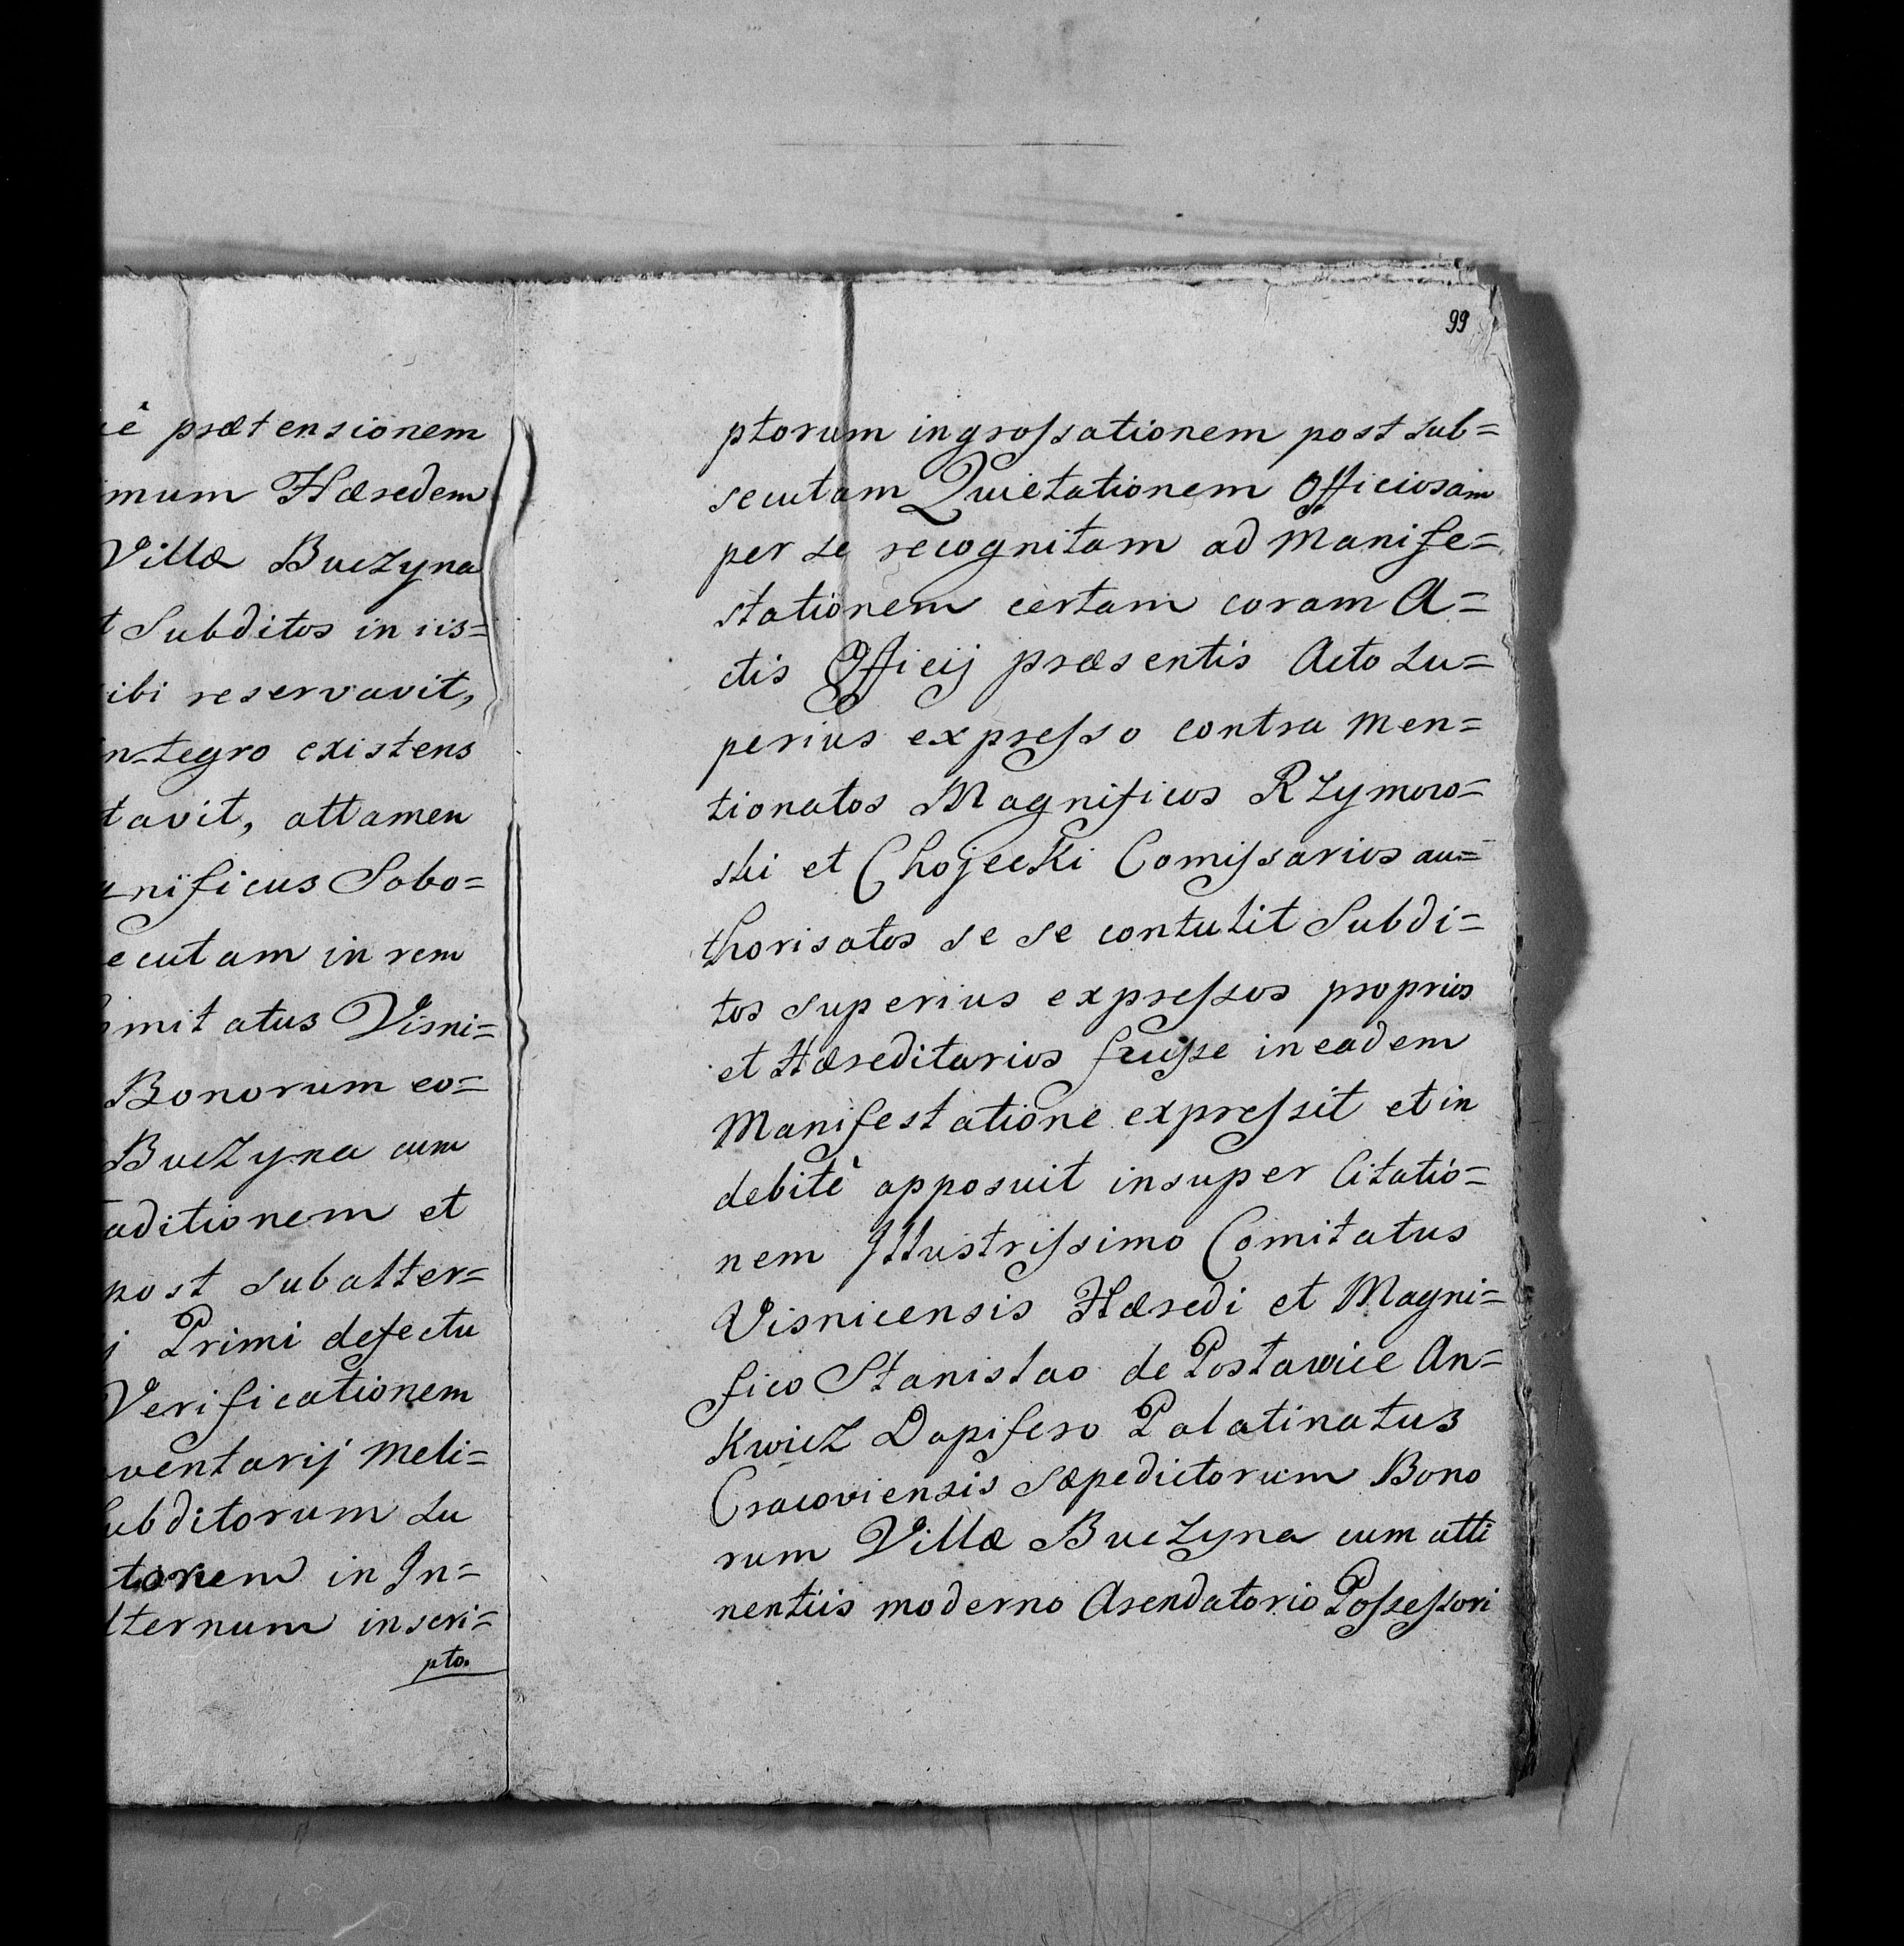 prætensionem
mum Hæredem
Villæ Buczyna
Subditos in iis=
ibi reservavit,
ntegro existens
tavit, attamen
gnificus Sobo=
ecutam in rem
mitatus Visni=
Bonorum eo=
Buczyna cum
aditionem et
post subalter=
j Primi defectu
Verificationem
ventarij meli=
ubditorum Su
torem in In=
lternum inscri=
pto.
99
ptorum ingrossationem post sub=
secutam Quietationem Officiosam
per se recognitam ad manife=
stationem certam coram A=
ctis Officij præsentis Acto Su=
perius expresso contra men=
tionatos Magnificos Rzymow=
ski et Chojecki Comissarios au=
thorisatos se se contulit Subdi=
tos superius expressos proprios
et Hæreditarios fuisse in eadem
Manifestatione expressit et in
debitè apposuit insuper Citatio=
nem Illustrissimo Comitatus
Visnicensis Hæredi et Magni=
fico Stanislao de Postawice An=
kwicz Dapifero Palatinatus
Cracoviensis sæpedictorum Bono
rum Villæ Buczyna cum atti
nentiis moderno Arendatorio Possessori